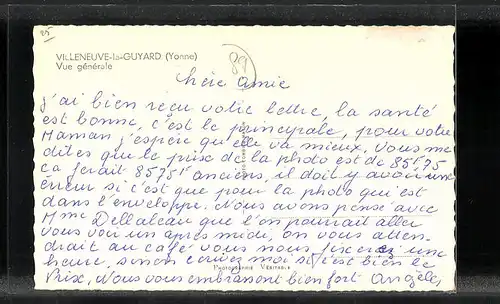 85
VILLENEUVE-la-GUYARD (Yonne)
Vue générale
89
Chère amie
J'ai bien reçu votre lettre, la santé
est bonne, c'est le principale, pour votre
Maman j'espère qu'elle va mieux, vous me
dites que le prix de la photo est de 85F75
ça ferait 8575F anciens, il doit y avoir une
erreur si c'est que pour la photo qui est
dans l'enveloppe. Nous avons pensé avec
Mme que l'on pourrait aller
vous voir un après midi, on vous atten-
drait au café vous nous fixerez une
heure, sinon écrivez moi si c'est bien le
Prix, Nous vous embrassent bien fort Angèle,
PHOTOGRAPHIE VÉRITABLE